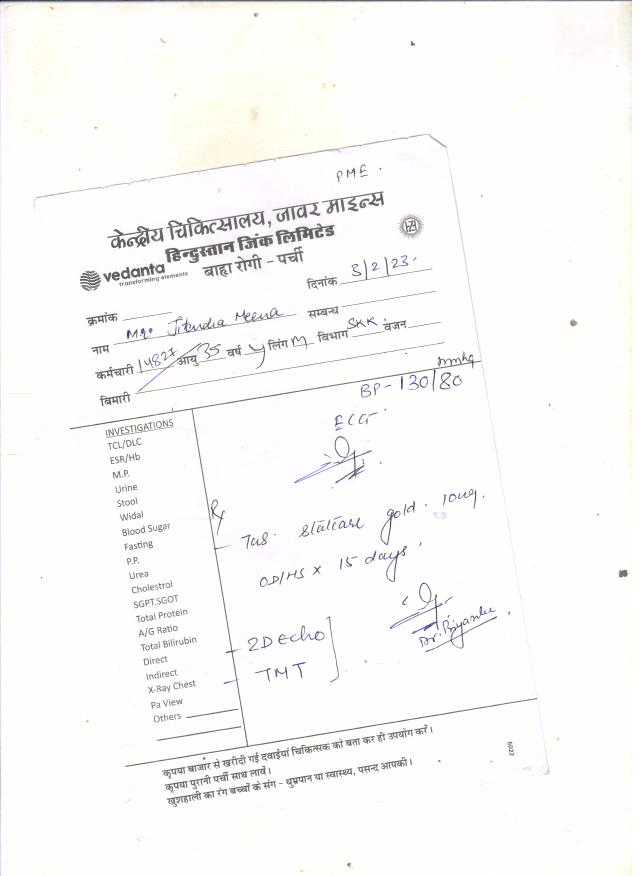 PME.
केन्द्रीय चिकित्सालय, जावर माइन्स
हिन्दुस्तान जिंक लिमिटेड
vedanta
transforming elements
बाह्य रोगी - पर्ची
दिनांक 3/2/23.
क्रमांक
नाम Mr. Jitendra Meena सम्बन्ध
कर्मचारी 14827 आयु 35 वर्ष y लिंग M विभाग SKK वजन
बिमारी
mmhg
BP - 130/80
INVESTIGATIONS
TCL/DLC
ESR/Hb
M.P.
Urine
Stool
Widal
Blood Sugar
Fasting
P.P.
Urea
Cholestrol
SGPT.SGOT
Total Protein
A/G Ratio
Total Bilirubin
Direct
Indirect
X-Ray Chest
Pa View
Others
ECG
Rx
- Tab. gold. 10mg.
OD/HS x 15 days.
Dr. Priyanka
- 2D echo
- TMT
कृपया बाजार से खरीदी गई दवाईयां चिकित्सक को बता कर ही उपयोग करें।
कृपया पुरानी पर्ची साथ लावें।
खुशहाली का रंग बच्चों के संग - धुम्रपान या स्वास्थ्य, पसन्द आपकी।
6022